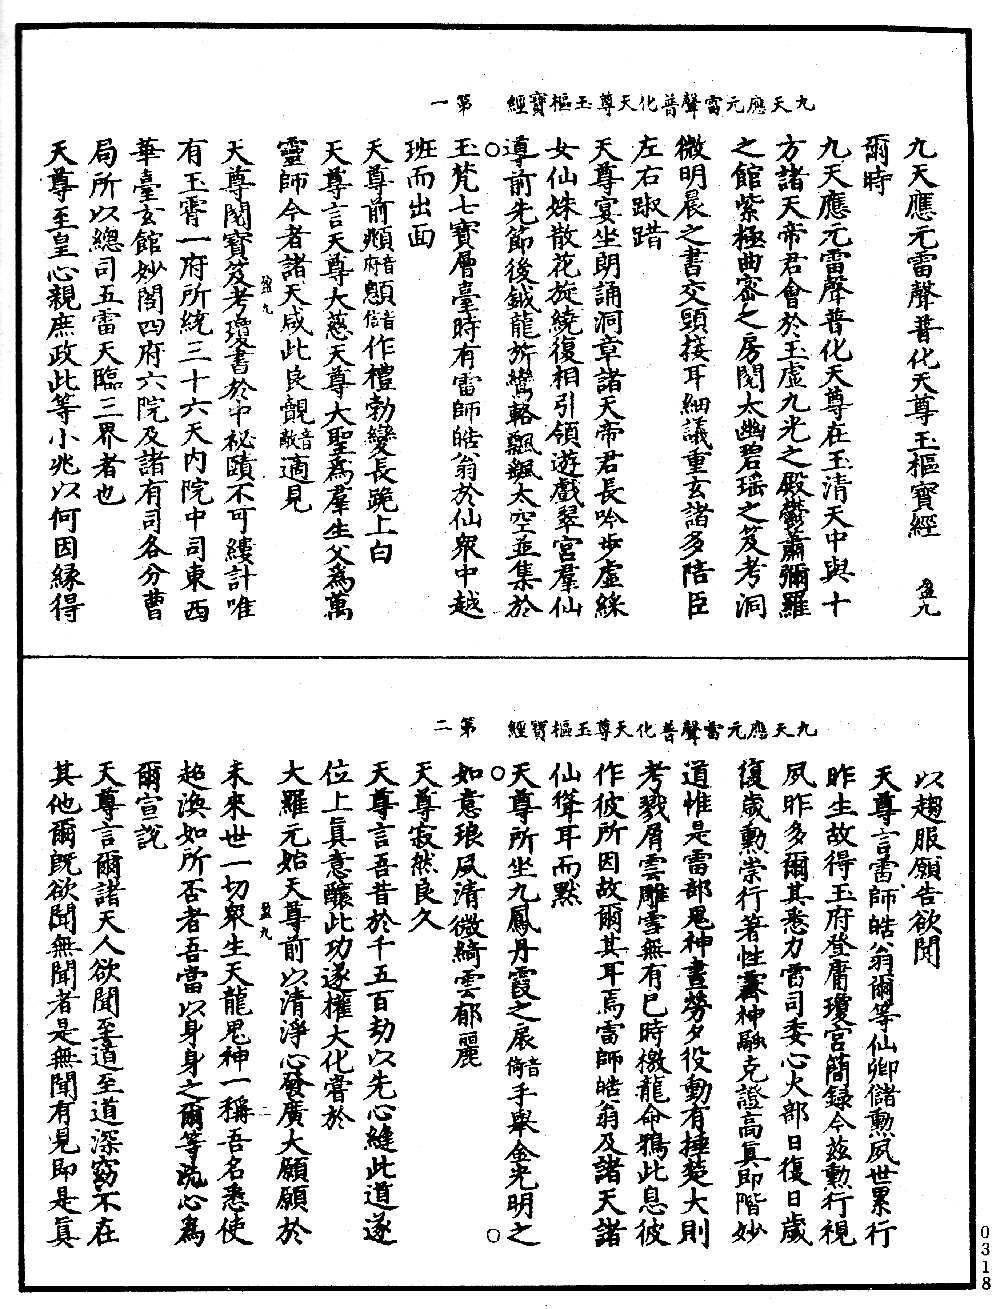 九天應元雷聲普化天尊玉樞寶經　第一
九天應元雷聲普化天尊玉樞寶經　盈九
爾時
九天應元雷聲普化天尊在玉清天中與十
方諸天帝君會於玉虛九光之殿鬱蕭彌羅
之館紫極曲密之房閱太幽碧瑶之笈考洞
微明晨之書交頭接耳細議重玄諸多陪臣
左右踧踖
天尊宴坐朗誦洞章諸天帝君長吟步虛綵
女仙姝散花旋繞復相引領遊戲翠宮羣仙
導前先節後鉞龍旂鸞輅飄飖太空並集於
玉梵七寶層臺時有雷師皓翁於仙衆中越
班而出面
天尊前頫音府顖音信作禮勃變長跪上白
天尊言天尊大慈天尊大聖為羣生父為萬
靈師今者諸天咸此良覿音敵適見
天尊閱寶笈考瓊書於中祕賾不可縷計唯
盈九
有玉霄一府所統三十六天内院中司東西
華臺玄館妙閣四府六院及諸有司各分曹
局所以總司五雷天臨三界者也
天尊至皇心親庶政此等小兆以何因緣得
九天應元雷聲普化天尊玉樞寶經　第二
以趨服願告欲聞
天尊言雷師皓翁爾等仙卿儲勳夙世累行
昨生故得玉府登庸瓊宮簡録今兹勳行視
夙昨多爾其悉力雷司委心火部日復日歲
復歲勳崇行著性霽神融克證高真即階妙
道惟是雷部鬼神晝勞夕役動有捶楚大則
考戮屑雲雕雪無有已時檄龍命鴉此息彼
作彼所因故爾其耳焉雷師皓翁及諸天諸
仙聳耳而默
天尊所坐九鳳丹霞之扆音倚手舉金光明之
如意琅風清微綺雲郁麗
天尊寂然良久
天尊言吾昔於千五百劫以先心縫此道遂
位上真意釀此功遂權大化嘗於
大羅元始天尊前以清淨心發廣大願願於
盈九
未來世一切衆生天龍鬼神一稱吾名悉使
二
超渙如所否者吾當以身身之爾等洗心為
爾宣說
天尊言爾諸天人欲聞至道至道深窈不在
其他爾既欲聞無聞者是無聞有見即是真
0318